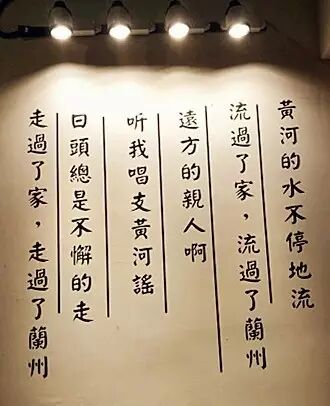 黃河的水不停地流
流過了家，流過了蘭州
遠方的親人啊
听我唱支黃河謠
日頭總是不懈的走
走過了家，走過了蘭州